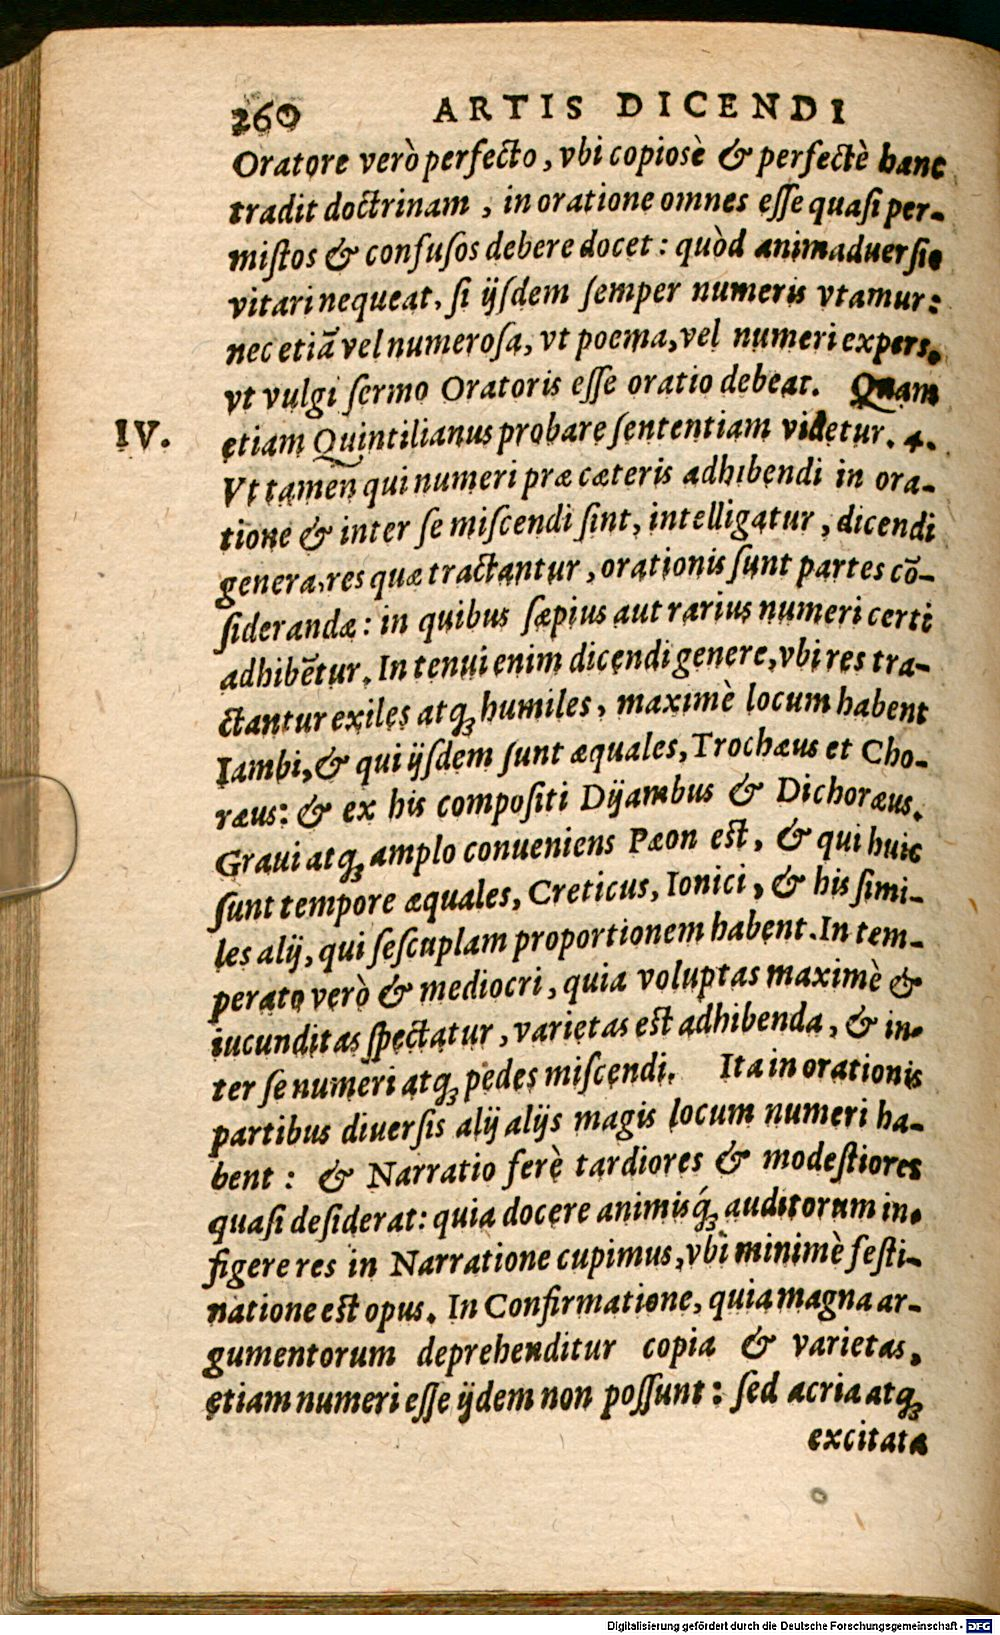 260 ARTIS DICENDI
Oratore verò perfecto, vbi copiosè & perfectè hanc
tradit doctrinam, in oratione omnes eſſe quaſi per-
miſtos & confuſos debere docet: quòd animaduerſio
vitari nequeat, ſi ijſdem ſemper numeris vtamur:
nec etiã vel numeroſa, vt poema, vel numeri expers,
vt vulgi ſermo Oratoris eſſe oratio debeat. Quam
IV. etiam Quintilianus probare ſententiam videtur. 4.
Vt tamen qui numeri præ cæteris adhibendi in ora-
tione & inter ſe miſcendi ſint, intelligatur, dicendi
genera, res quæ tractantur, orationis ſunt partes cõ-
ſiderandæ: in quibus ſæpius aut rarius numeri certi
adhibẽtur. In tenui enim dicendi genere, vbi res tra-
ctantur exiles atq́; humiles, maximè locum habent
Iambi, & qui ijſdem ſunt æquales, Trochæus et Cho-
ræus: & ex his compoſiti Dijambus & Dichoræus.
Graui atq; amplo conueniens Pæon eſt, & qui huic
ſunt tempore æquales, Creticus, Ionici, & his ſimi-
les alij, qui ſeſcuplam proportionem habent. In tem-
perato verò & mediocri, quia voluptas maximè &
iucunditas ſpectatur, varietas eſt adhibenda, & in-
ter ſe numeri atq; pedes miſcendi. Ita in orationis
partibus diuerſis alij alijs magis locum numeri ha-
bent: & Narratio ferè tardiores & modeſtiores
quaſi deſiderat: quia docere animisq́; auditorum in-
figere res in Narratione cupimus, vbi minimè feſti-
natione eſt opus. In Confirmatione, quia magna ar-
gumentorum deprehenditur copia & varietas,
etiam numeri eſſe ijdem non poſſunt: ſed acria atq;
excitata
Digitalisierung gefördert durch die Deutsche Forschungsgemeinschaft - DFG